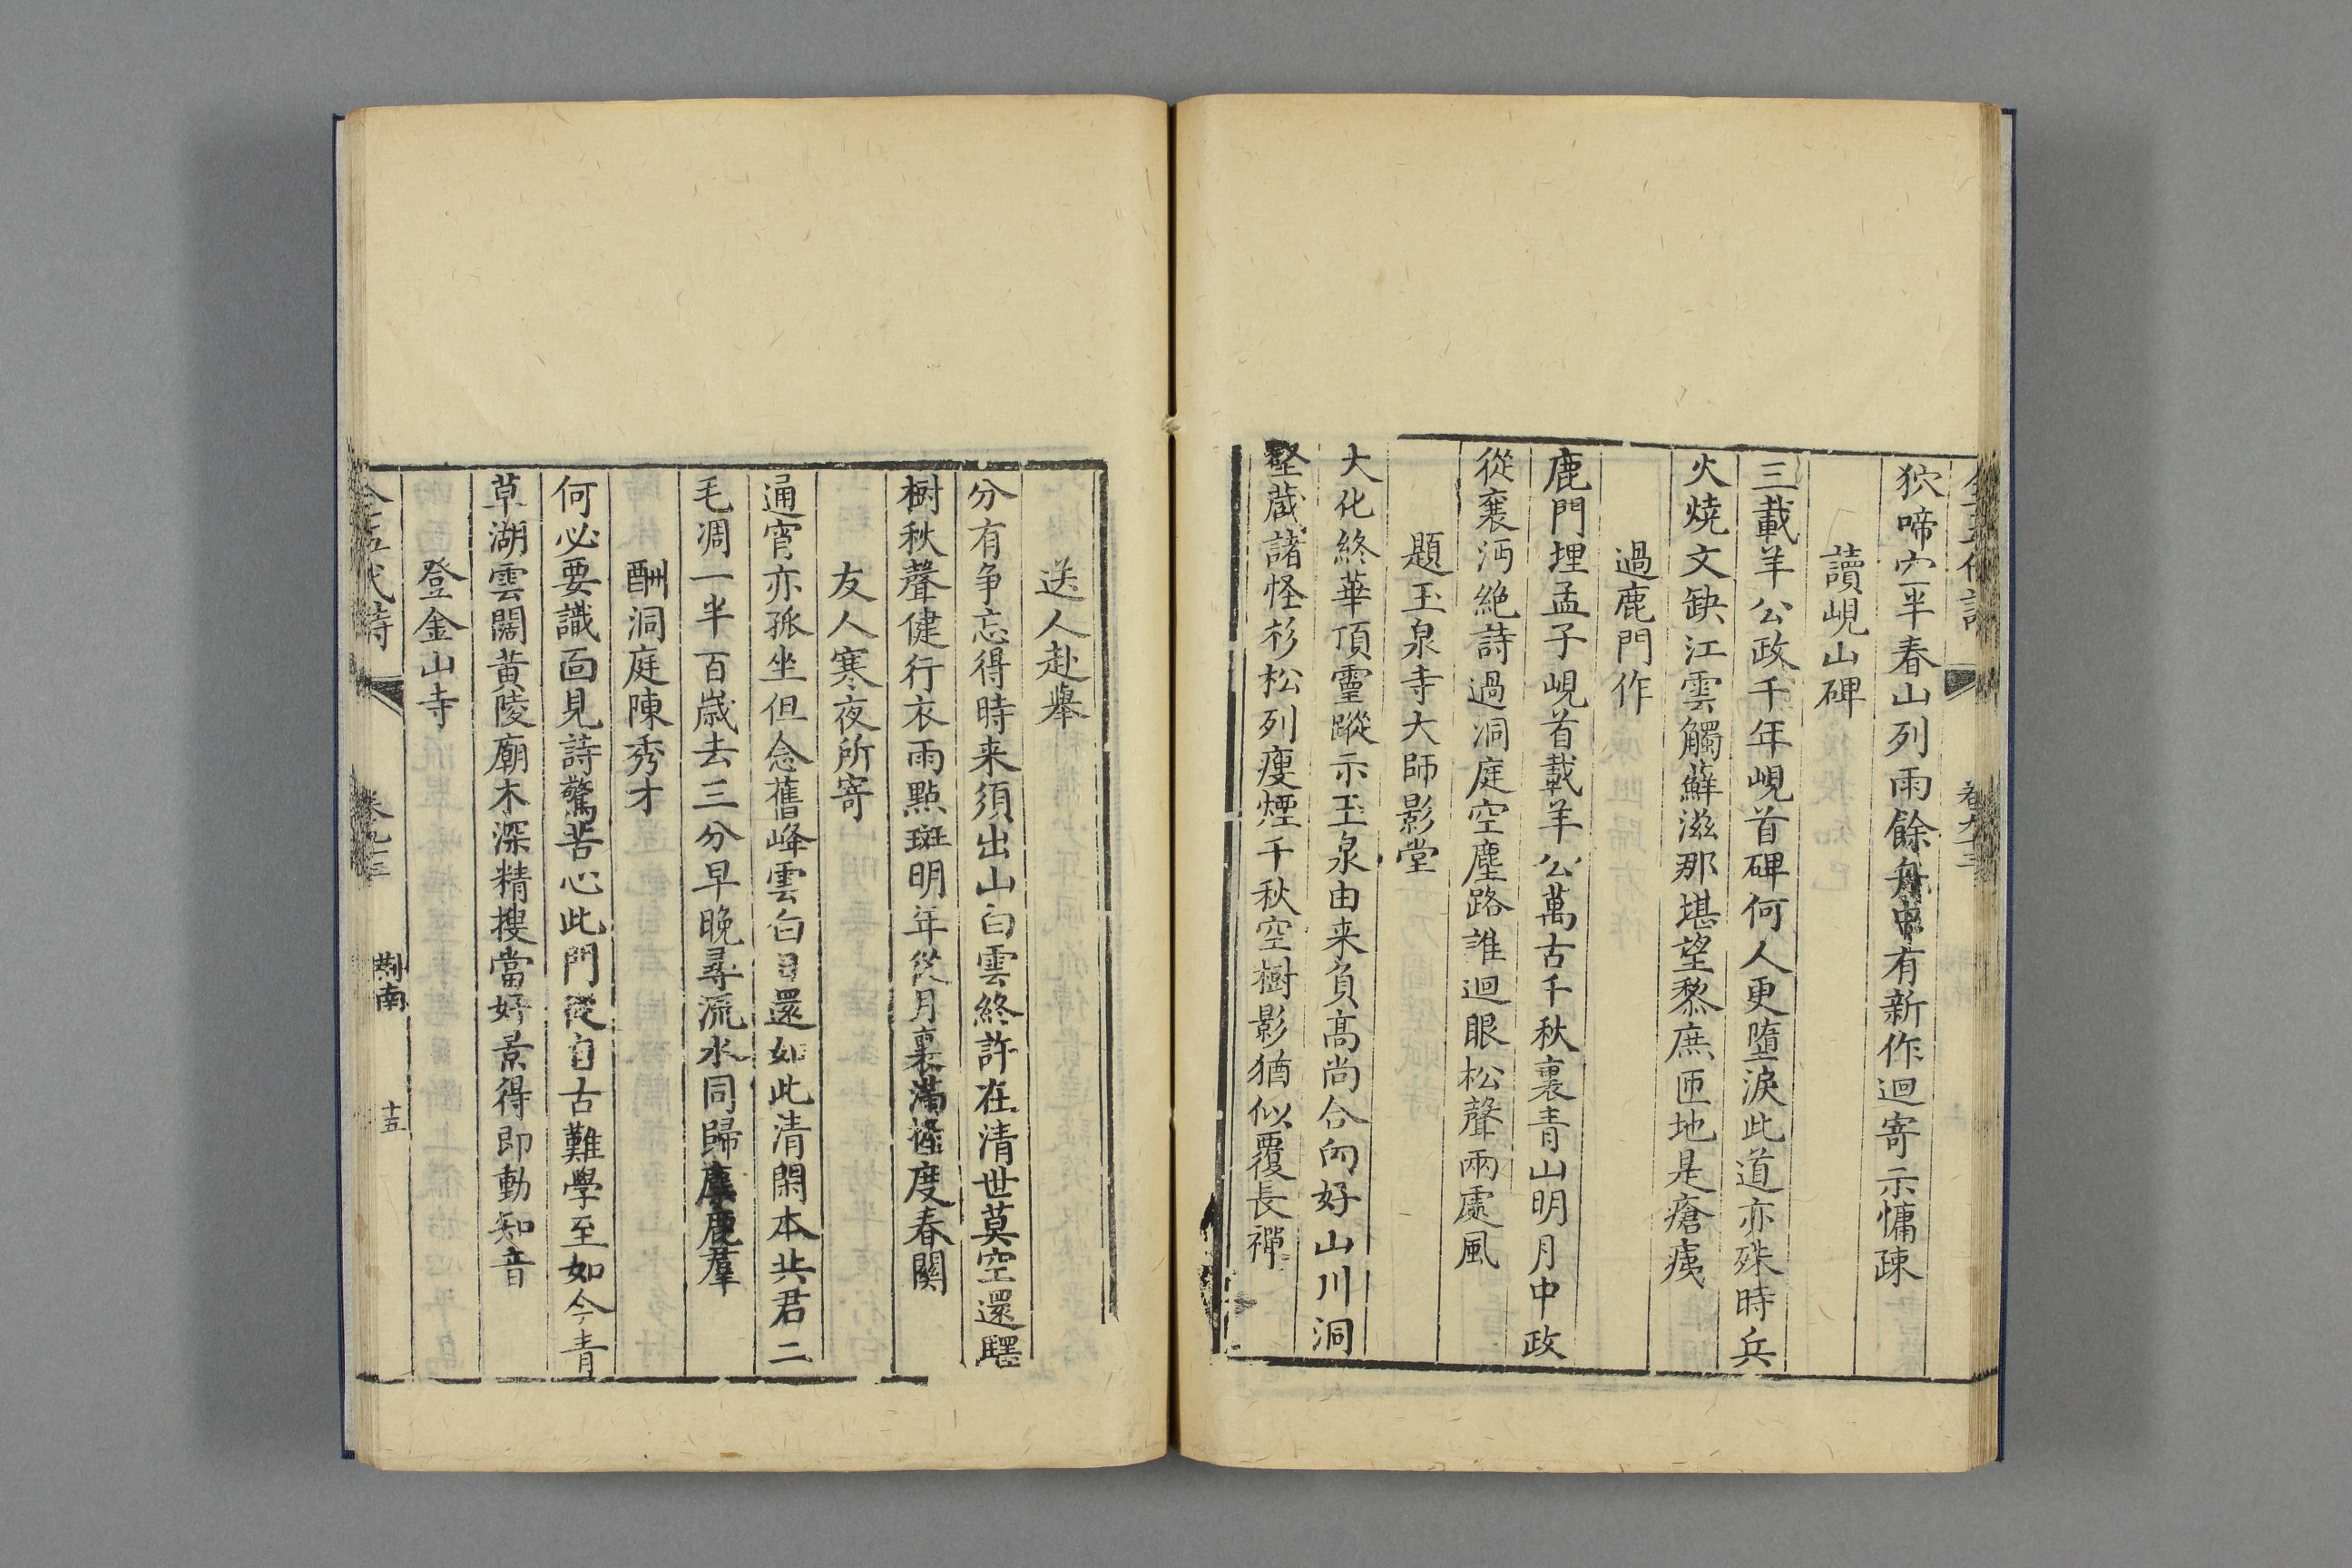 狖啼穴半春山列雨餘舟中有新作迴寄示慵疎
讀峴山碑
三載羊公政千年峴首碑何人更墮淚此道亦殊時兵
火燒文缺江雲觸蘚滋那堪望黎庶匝地是瘡痍
過鹿門作
鹿門埋孟子峴首載羊公萬古千秋裏青山明月中政
從襄沔絶詩過洞庭空塵路誰迴眼松聲兩處風
題玉泉寺大師影堂
大化終華頂靈蹤示玉泉由来負髙尚合向好山川洞
壑蔵諸怪杉松列瘦煙千秋空樹影猶似覆長禪
送人赴舉
分有争忘得時来須出山白雲終許在清世莫空還驛
樹秋聲健行衣雨點斑明年從月裏滿握度春關
友人寒夜所寄
通宵亦孤坐但念舊峰雲白日還如此清閑本共君二
毛凋一半百歲去三分早晚尋流水同歸麋鹿羣
酬洞庭陳秀才
何必要識面見詩驚苦心此門從自古難學至如今青
草湖雲闊黄陵廟木深精搜當好景得即動知音
登金山寺
全五代詩 卷九十三 荆南 十五